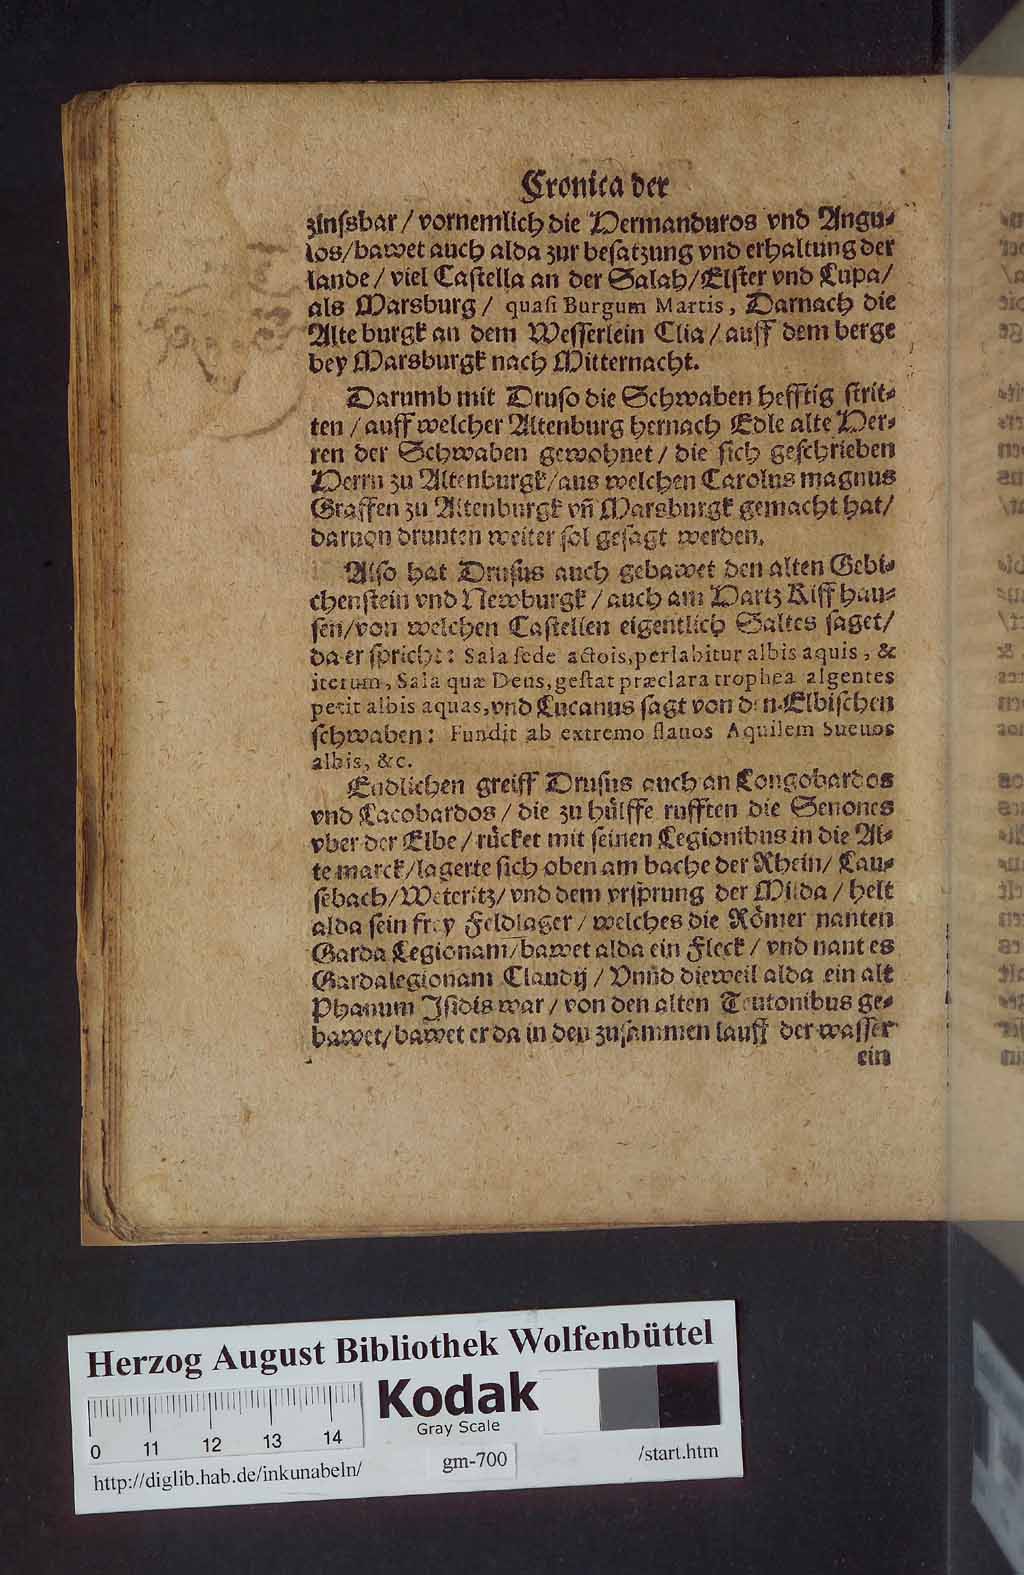 Cronica der
zinſsbar / vornemlich die Hermanduros vnd Angu⸗
los/bawet auch alda zur beſatzung vnd erhaltung der
lande / viel Caſtella an der Salah/Elſter vnd Lupa/
als Marsburg / quaſi Burgum Martis, Darnach die
Alte burgk an dem Weſſerlein Clia / auff dem berge
bey Marsburgk nach Mitternacht.
Darumb mit Druſo die Schwaben hefftig ſtrit⸗
ten / auff welcher Altenburg hernach Edle alte Her⸗
ren der Schwaben gewohnet / die ſich geſchrieben
Herrn zu Altenburgk/aus welchen Carolus magnus
Graffen zu Altenburgk vn̄ Marsburgk gemacht hat/
daruon drunten weiter ſol geſagt werden.
Alſo hat Druſus auch gebawet den alten Gebi⸗
chenſtein vnd Newburgk / auch am Hartz Kiff hau⸗
ſen/von welchen Caſtellen eigentlich Saltes ſaget/
da er ſpricht: Sala ſede actois,perlabitur albis aquis, &
iterum, Sala quæ Deus,geſtat præclara trophea algentes
petit albis aquas,vnd Lucanus ſagt von den Elbiſchen
ſchwaben: Fundit ab extremo flauos Aquilem Sueuos
albis, &c.
Endlichen greiff Druſus auch an Longobardos
vnd Cacobardos / die zu hülffe rufften die Senones
vber der Elbe / rücket mit ſeinen Legionibus in die Al⸗
te marck/lagerte ſich oben am bache der Rhein/ Lau⸗
ſebach/Weteritz/ vnd dem vrſprung der Milda / helt
alda ſein frey Feldlager / welches die Römer nanten
Garda Legionam/bawet alda ein Fleck / vnd nant es
Gardalegionam Claudij / Vnnd dieweil alda ein alt
Phanum Iſidis war / von den alten Teutonibus ge⸗
bawet/ bawet er da in den zuſammen lauff der waſſer
ein
Herzog August Bibliothek Wolfenbüttel
Kodak
Gray Scale
0 11 12 13 14
http://diglib.hab.de/inkunabeln/
gm-700
/start.htm